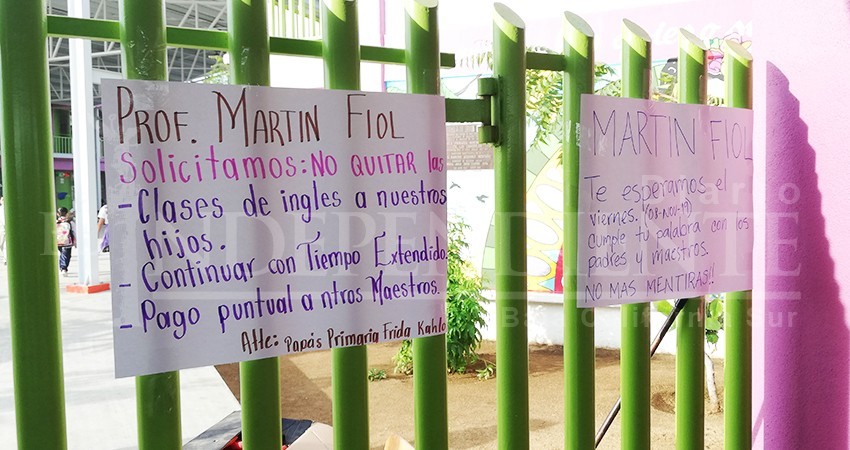 PROF. MARTIN FIOL
Solicitamos: NO QUITAR las
- Clases de ingles a nuestros
hijos.
- Continuar con Tiempo Extendido.
- Pago puntual a ntros Maestros.
Atte: Papás Primaria Frida Kahlo
MARTIN FIOL
Te esperamos el
viernes. (08-Nov-19)
cumple tu palabra con los
padres y maestros.
NO MAS MENTIRAS!!
Diario
EL INDEPENDIENTE
Baja California Sur